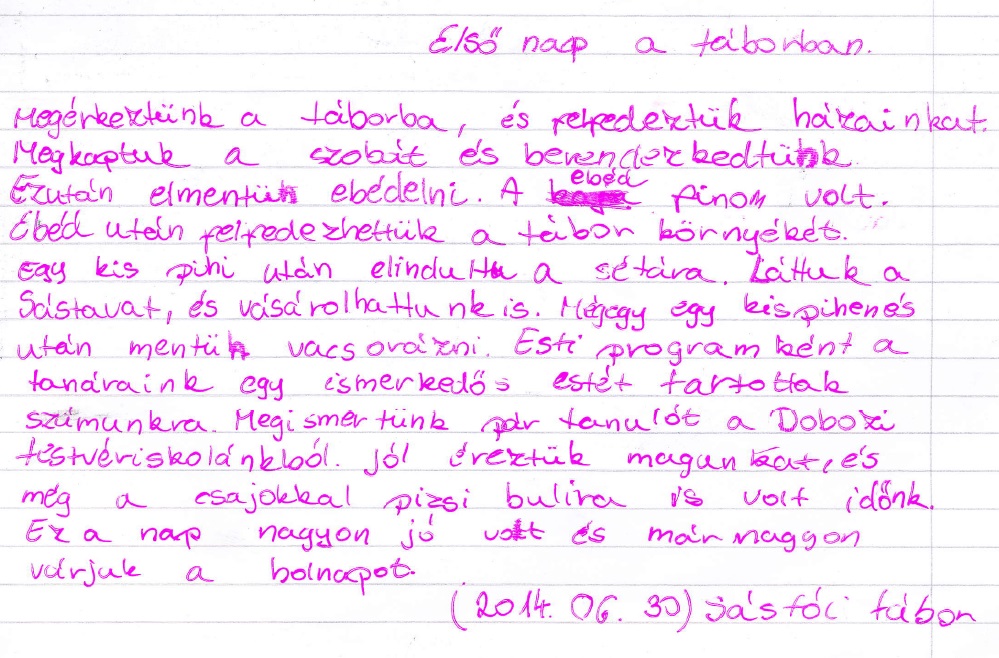 Első nap a táborban.
Megérkeztünk a táborba, és felfedeztük házainkat.
Megkaptuk a szobát és berendezkedtünk.
Ezután elmentünk ebédelni. A ebéd finom volt.
Ebéd után felfedezhettük a tábor környékét.
Egy kis pihi után elindultu a sétára. Láttuk a
Sástavat, és vásárolhattunk is. Mégegy egy kispihenés
után mentünk vacsorázni. Esti programként a
tanáraink egy ismerkedős estét tartottak
számunkra. Megismertünk pár tanulót a Dobozi
testvériskolánkból. jól éreztük magunkat, és
még a csajokkal pizsi bulira is volt időnk.
Ez a nap nagyon jó volt és már nagyon
várjuk a holnapot.
(2014. 06. 30) Sástói tábor